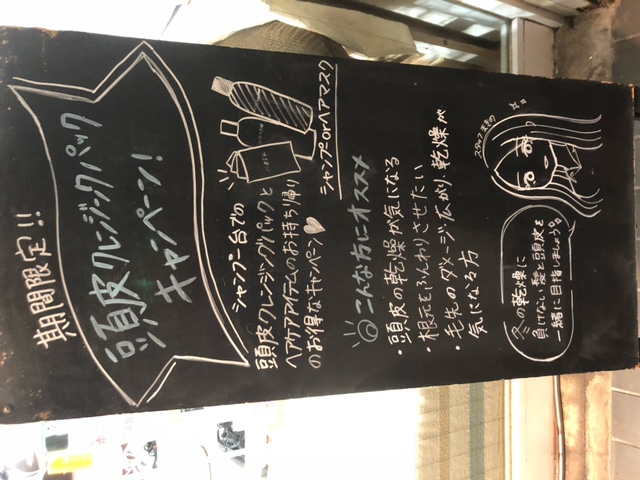 期間限定!!
頭皮クレンジングパック
キャンペーン!
シャンプー台での
頭皮クレンジングパックと
ヘアケアアイテムのお持ち帰り
のお得なキャンペーン♡
シャンプorヘアマスク
◎こんな方にオススメ
・頭皮の乾燥が気になる
・根元をふんわりさせたい
・毛先のダメージ広がり、乾燥が
気になる方
スタッフ
冬の乾燥に
負けない髪と頭皮を
一緒に目指しましょう